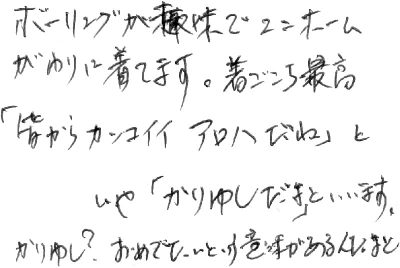 ボーリングが趣味でユニホーム
がわりに着てます。着ごこち最高
「皆からカッコイイ アロハだね」と
いや「かりゆしだよ」といいます。
かりゆし？おめでたいという意味があるんだよと